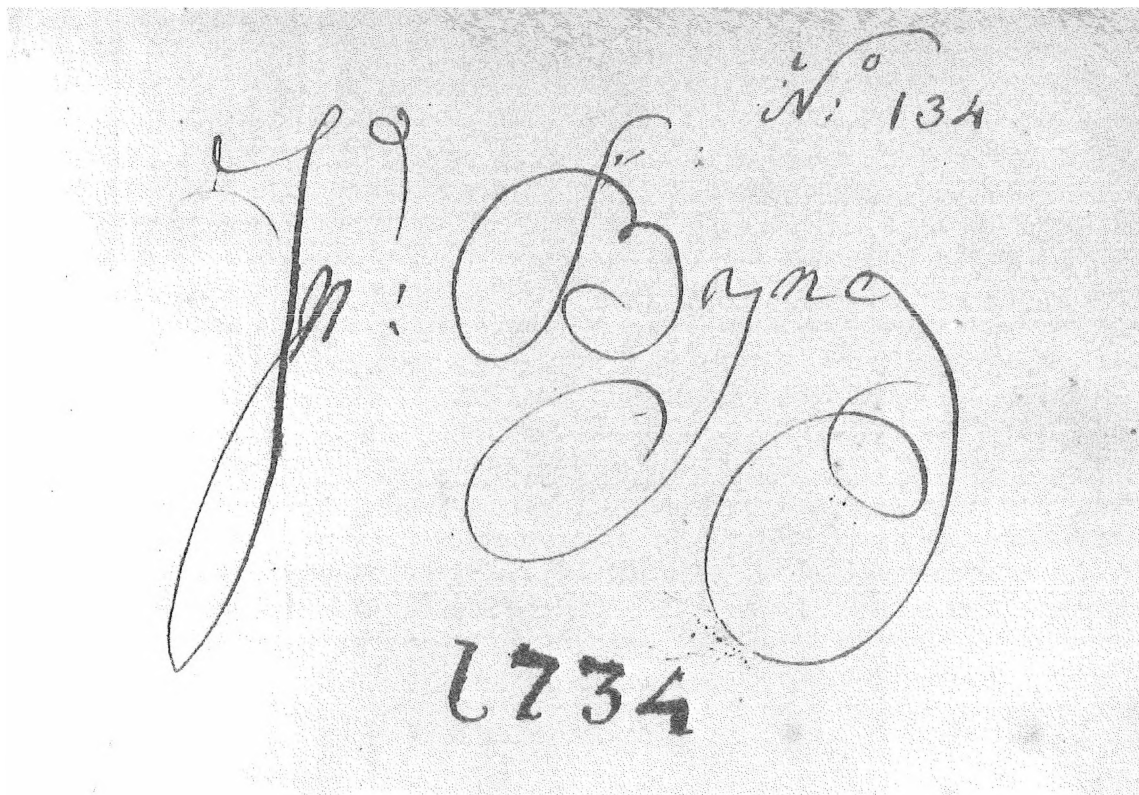 No: 134
Jn: Byng
1734